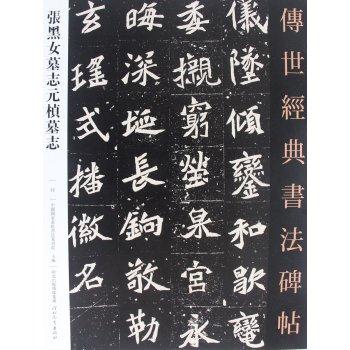 傳世經典書法碑帖
儀墜傾鑾和歇
委櫬窮塋泉宮永
晦深埏長鐍敬勒
玄瑤式播徽名
張黑女墓志元楨墓志